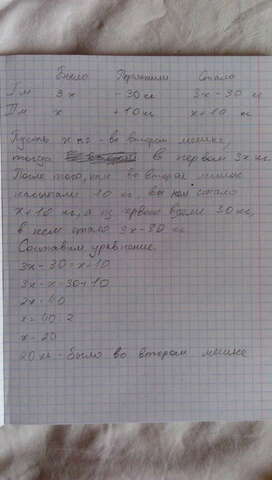 Было Стало
I м 3x - 30 кг 3x - 30 кг
II м x + 10 кг x + 10 кг
Пусть x кг - во втором мешке,
тогда в первом 3x кг.
После того, как во второй мешок
насыпали 10 кг, в нем стало
x + 10 кг, а из первого взяли 30 кг,
в нем стало 3x - 30 кг
Составим уравнение.
3x - 30 = x + 10
3x - x = 30 + 10
2x = 40
x = 40 : 2
x = 20
20 кг - было во втором мешке